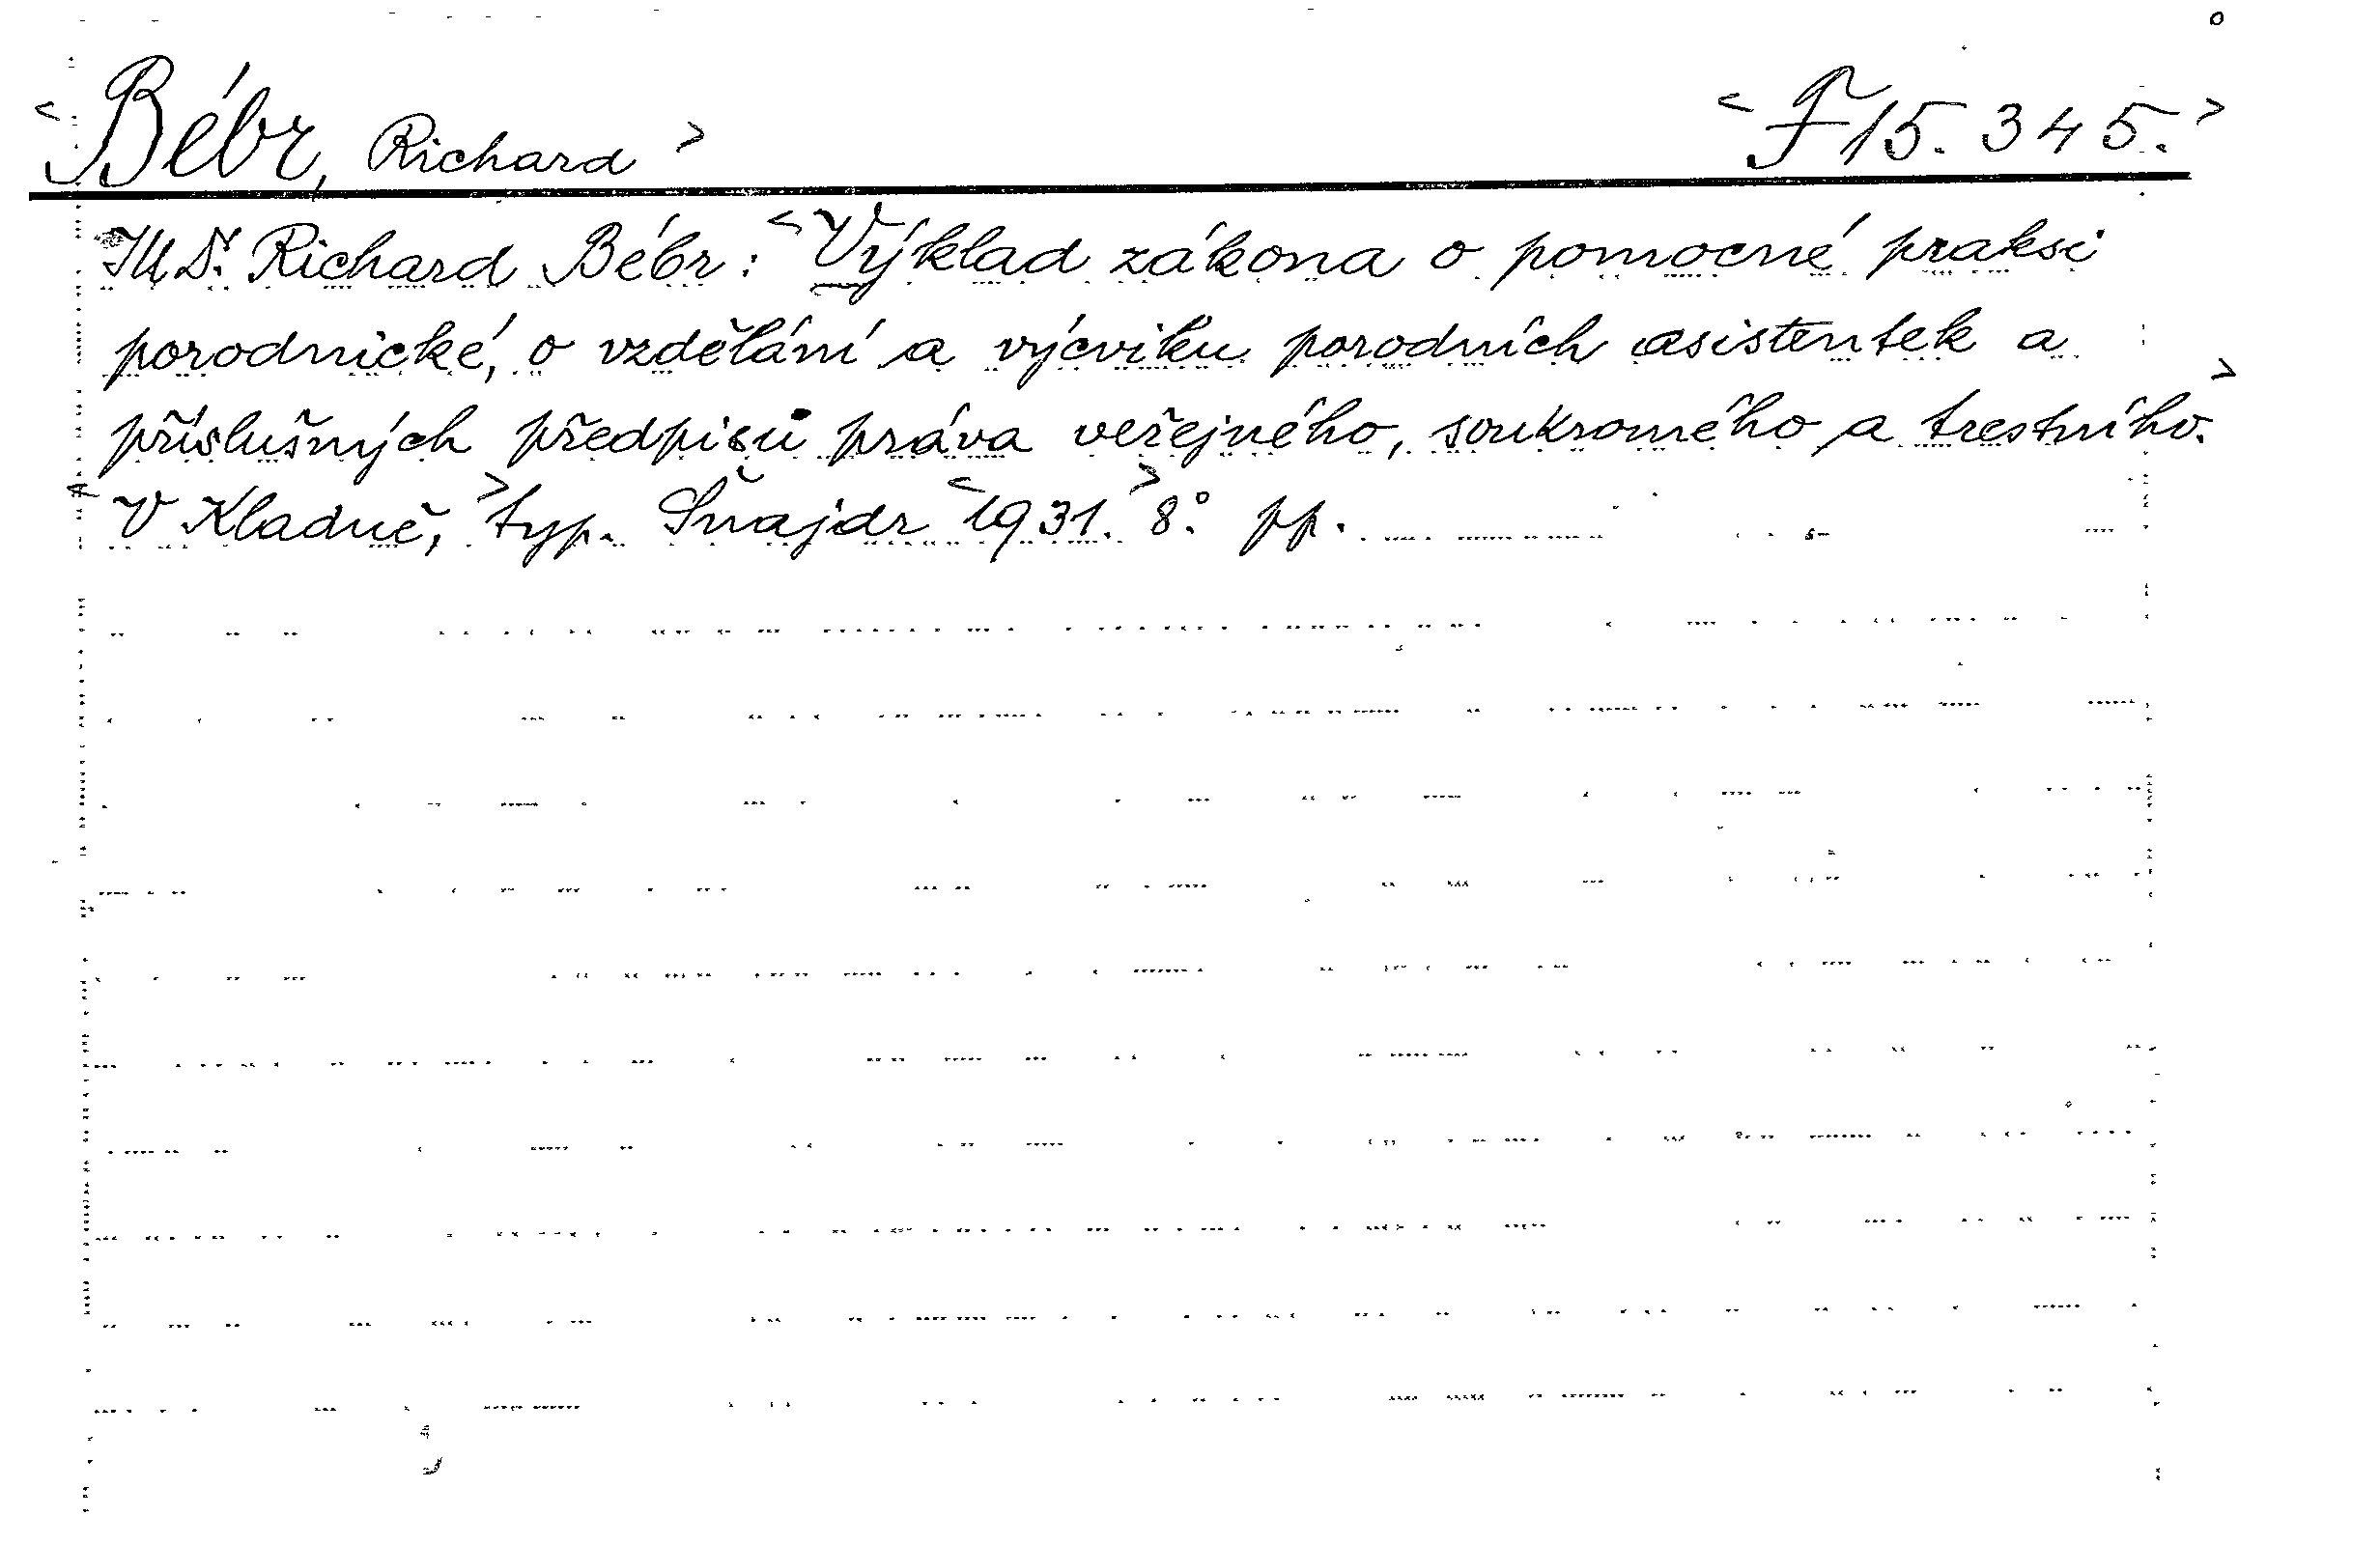 <Bébr, Richard> <F 15.345.>
JUDr. Richard Bébr: <Výklad zákona o pomocné praksi
porodnické, o vzdělání a výcviku porodních asistentek a
příslušných předpisů práva veřejného, soukromého a trestního.>
<V Kladně,> typ. Šnajdr <1931.> 8° pp.